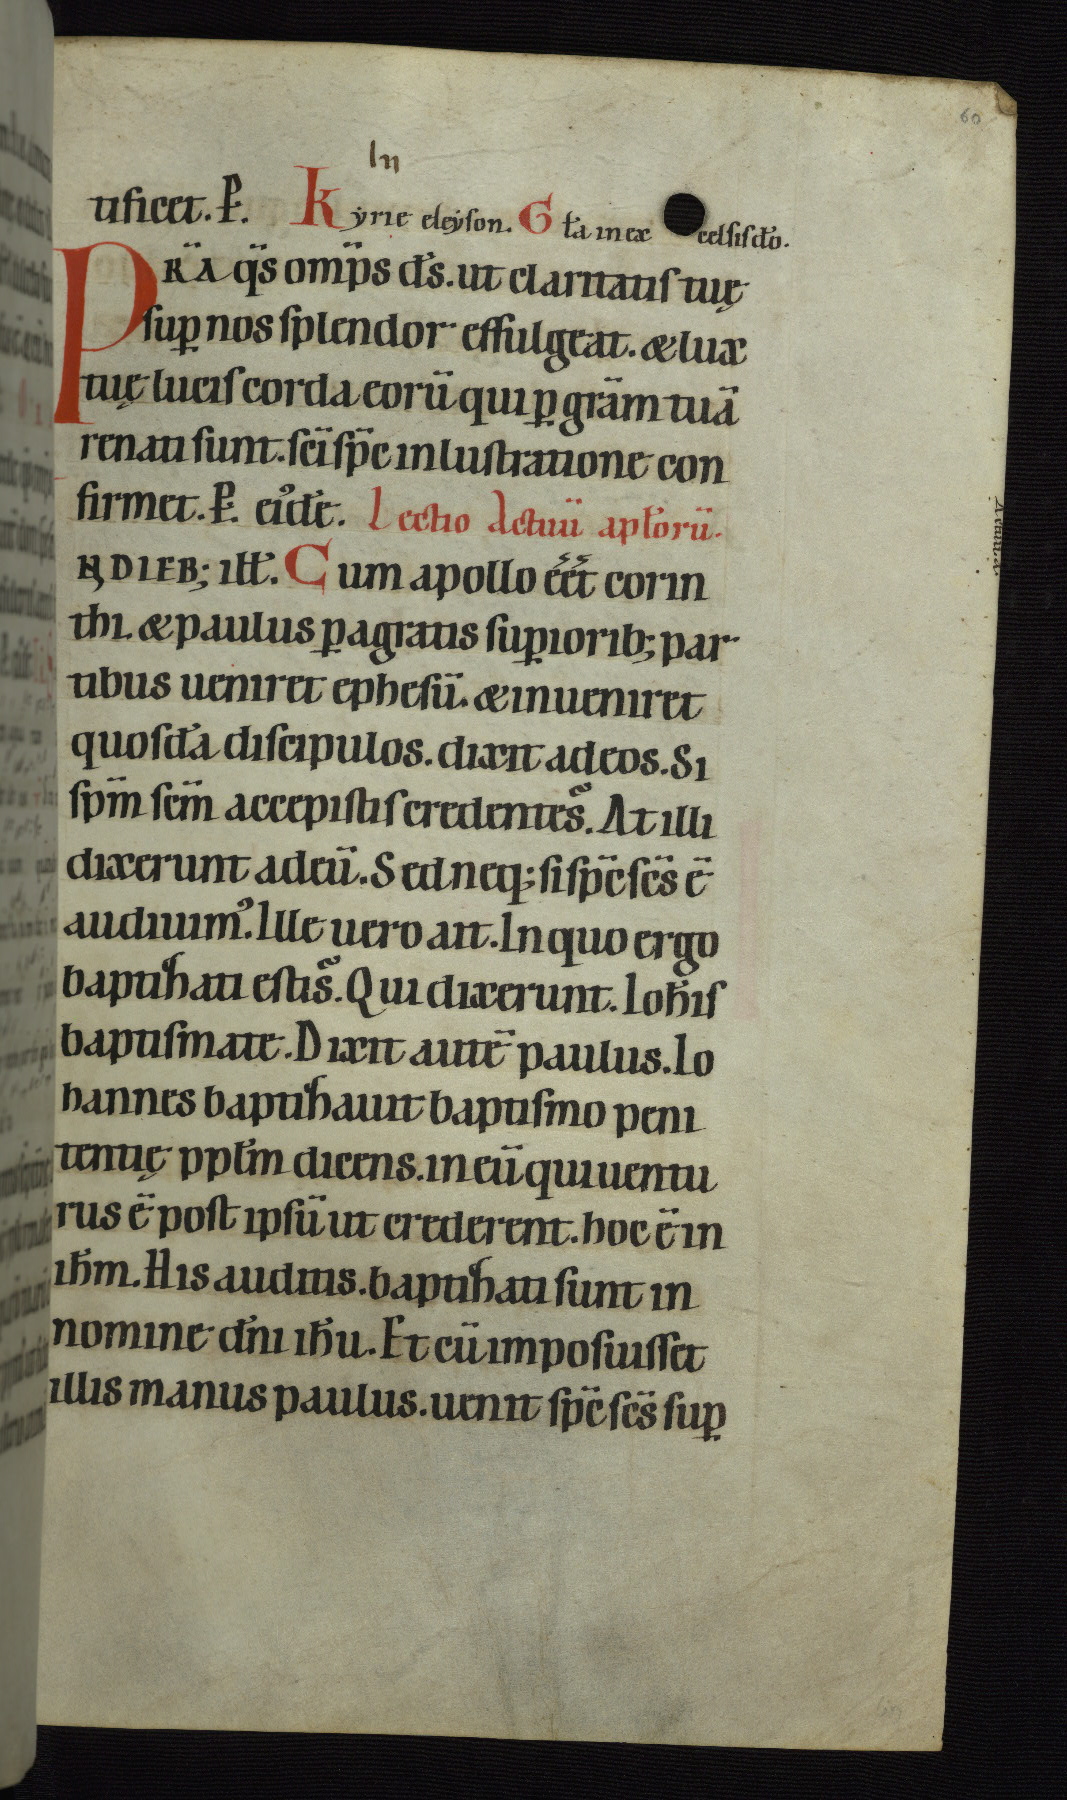 60
In
tificet. P. Kyrie eleyson. Gła in ex celsis dõ.
PRA q̃s omp̃s d̃s. ut claritatis tuę
sup̱ nos splendor effulgeat. & lux
tuę lucis corda eorũ qui p̱ grãm tuã
renati sunt. sc̃i sp̃c inlustratione con
firmet. P. eiꝰdẽ. Lectio Actuũ apl̃orũ.
IN DIEB; ill̃. Cum apollo eẽt corin
thi. & paulus p̱agratis sup̱iorib; par
tibus ueniret ephesũ. & inueniret
quosdã discipulos. dixit ad eos. Si
sp̃m sc̃m accepistis credentes. At illi
dixerunt ad eũ. Sed neq; si sp̃c sc̃s ẽ
audiuimꝰ. Ille uero ait. In quo ergo
baptizati estis. Qui dixerunt. Ioh̃is
baptismate. Dixit autẽ paulus. Io
hannes baptizauit baptismo peni
tentię ppl̃m dicens. in eũ qui uentu
rus ẽ post ipsũ ut crederent. hoc ẽ in
ih̃m. His auditis. baptizati sunt in
nomine dñi ih̃u. Et cũ imposuisset
illis manus paulus. uenit sp̃c sc̃s sup̱